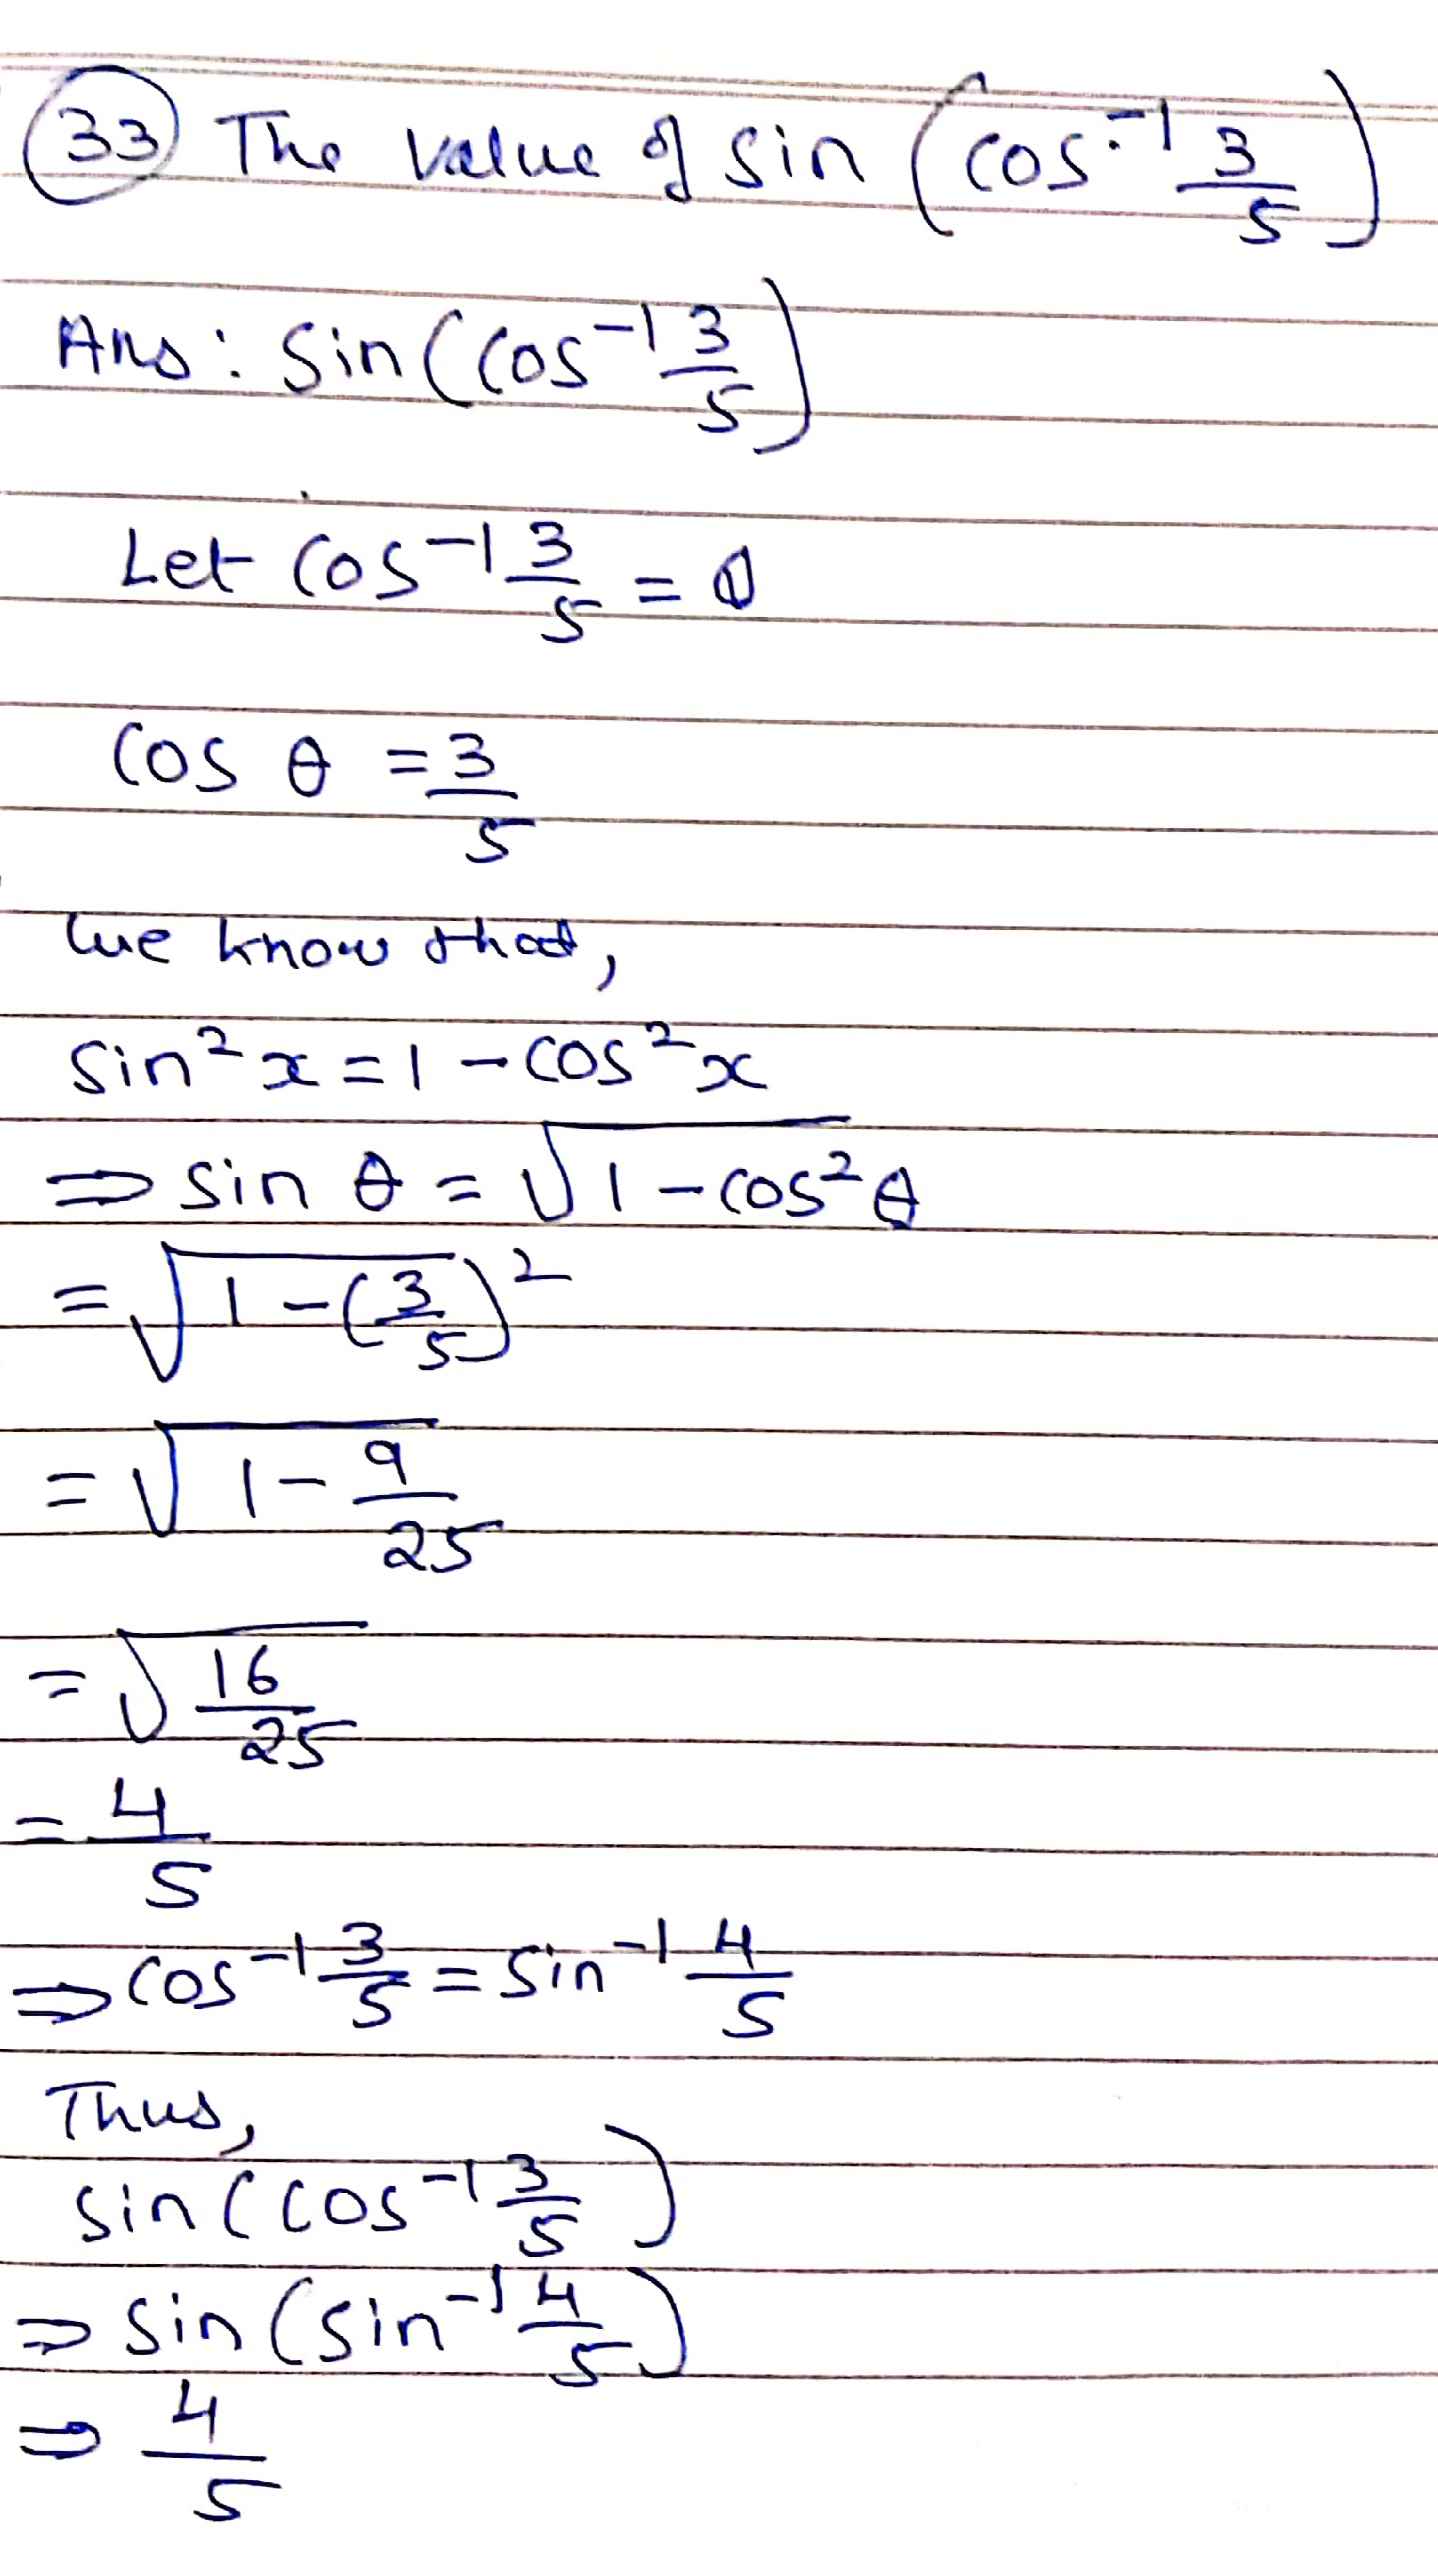 33 The value of sin (cos⁻¹ 3/5)
Ans: sin(cos⁻¹ 3/5)
Let cos⁻¹ 3/5 = θ
cos θ = 3/5
we know that,
sin² x = 1 - cos² x
⇒ sin θ = √1 - cos² θ
= √1 - (3/5)²
= √1 - 9/25
= √16/25
= 4/5
⇒ cos⁻¹ 3/5 = sin⁻¹ 4/5
Thus,
sin(cos⁻¹ 3/5)
⇒ sin(sin⁻¹ 4/5)
⇒ 4/5